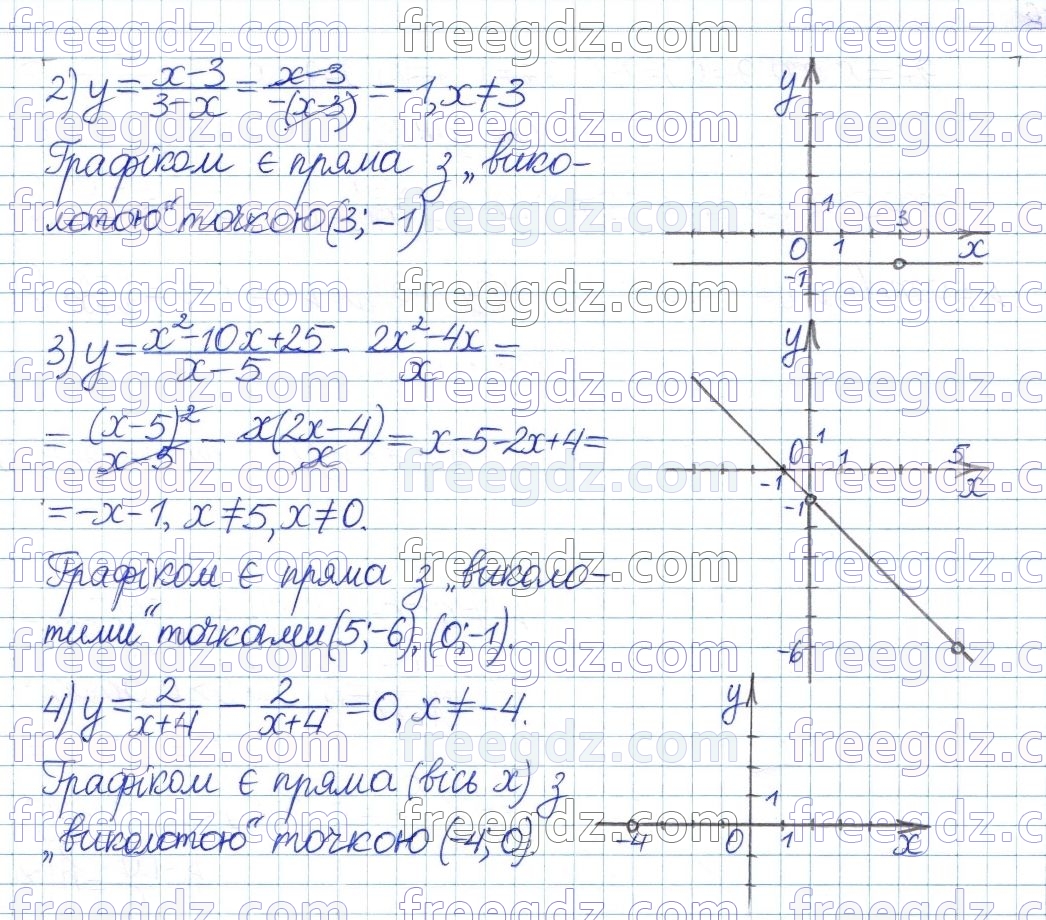 2) y = (x-3)/(3-x) = (x-3)/(-(x-3)) = -1, x ≠ 3
Графіком є пряма з „вико-
лотою“ точкою (3; -1)
3) y = (x²-10x+25)/(x-5) - (2x²-4x)/x =
= (x-5)²/(x-5) - x(2x-4)/x = x-5-2x+4 =
= -x-1, x ≠ 5, x ≠ 0.
Графіком є пряма з „виколо-
тими“ точками (5; -6), (0; -1).
4) y = 2/(x+4) - 2/(x+4) = 0, x ≠ -4.
Графіком є пряма (вісь x) з
„виколотою“ точкою (-4; 0).
y
1
3
0 1 x
-1
y
1
0 1 5
-1 x
-1
-6
y
1
-4 0 1 x
freegdz.com